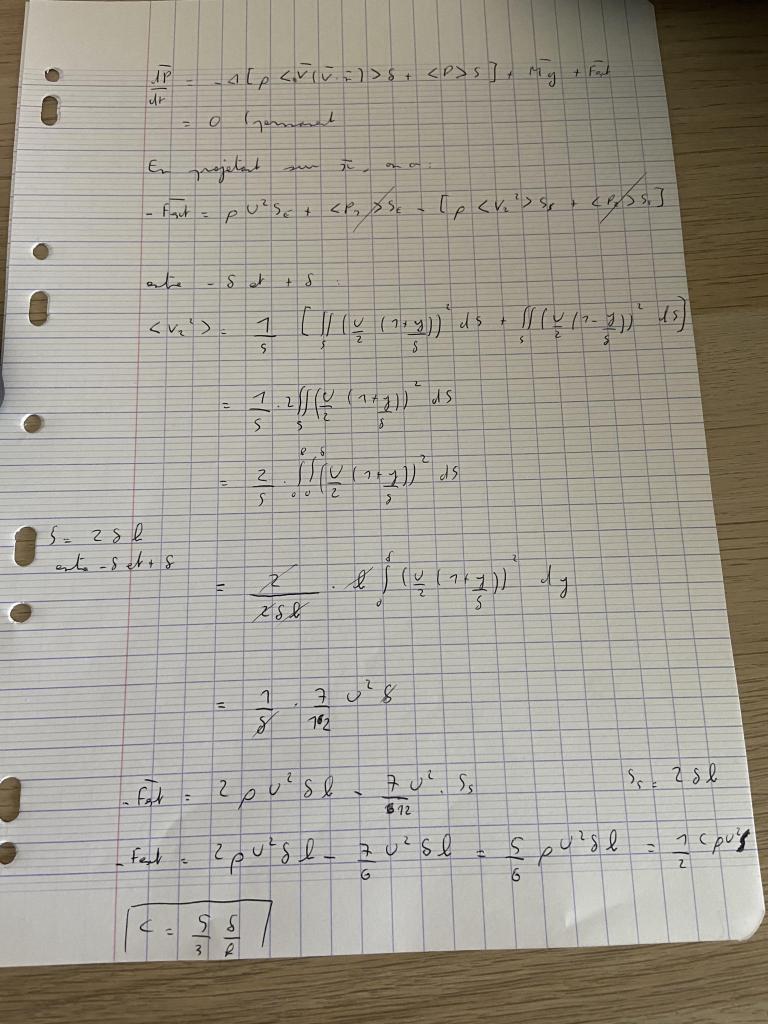 dP̄/dt = -Δ[ρ <V̄(V̄.n̄)> S + <P> S] + Mḡ + F̄ext
= 0 (permanent
En projetant sur x̄, on a :
- F̄ext = ρ U² Sₑ + <Pₑ> Sₑ - [ρ <Vₛ²> Sₛ + <Pₛ> Sₛ]
entre - δ et + δ :
<Vₛ²> = 1/S [∬_S (U/2 (1+y/δ))² dS + ∬_S (U/2 (1-y/δ))² dS]
= 1/S . 2 ∬_S (U/2 (1+y/δ))² dS
= 2/S . ∫₀^ℓ ∫₀^δ (U/2 (1+y/δ))² dS
S = 2 δ l
entre - δ et + δ
= 2/(2δl) . l ∫₀^δ (U/2 (1+y/δ))² dy
= 1/δ . 7/12 U² δ
- F̄ext = 2 ρ U² δ l - 7/12 U² . Sₛ
Sₛ = 2 δ l
- F̄ext = 2 ρ U² δ l - 7/6 U² δ l = 5/6 ρ U² δ l = 1/2 C ρ U²
C = 5/3 δ/l